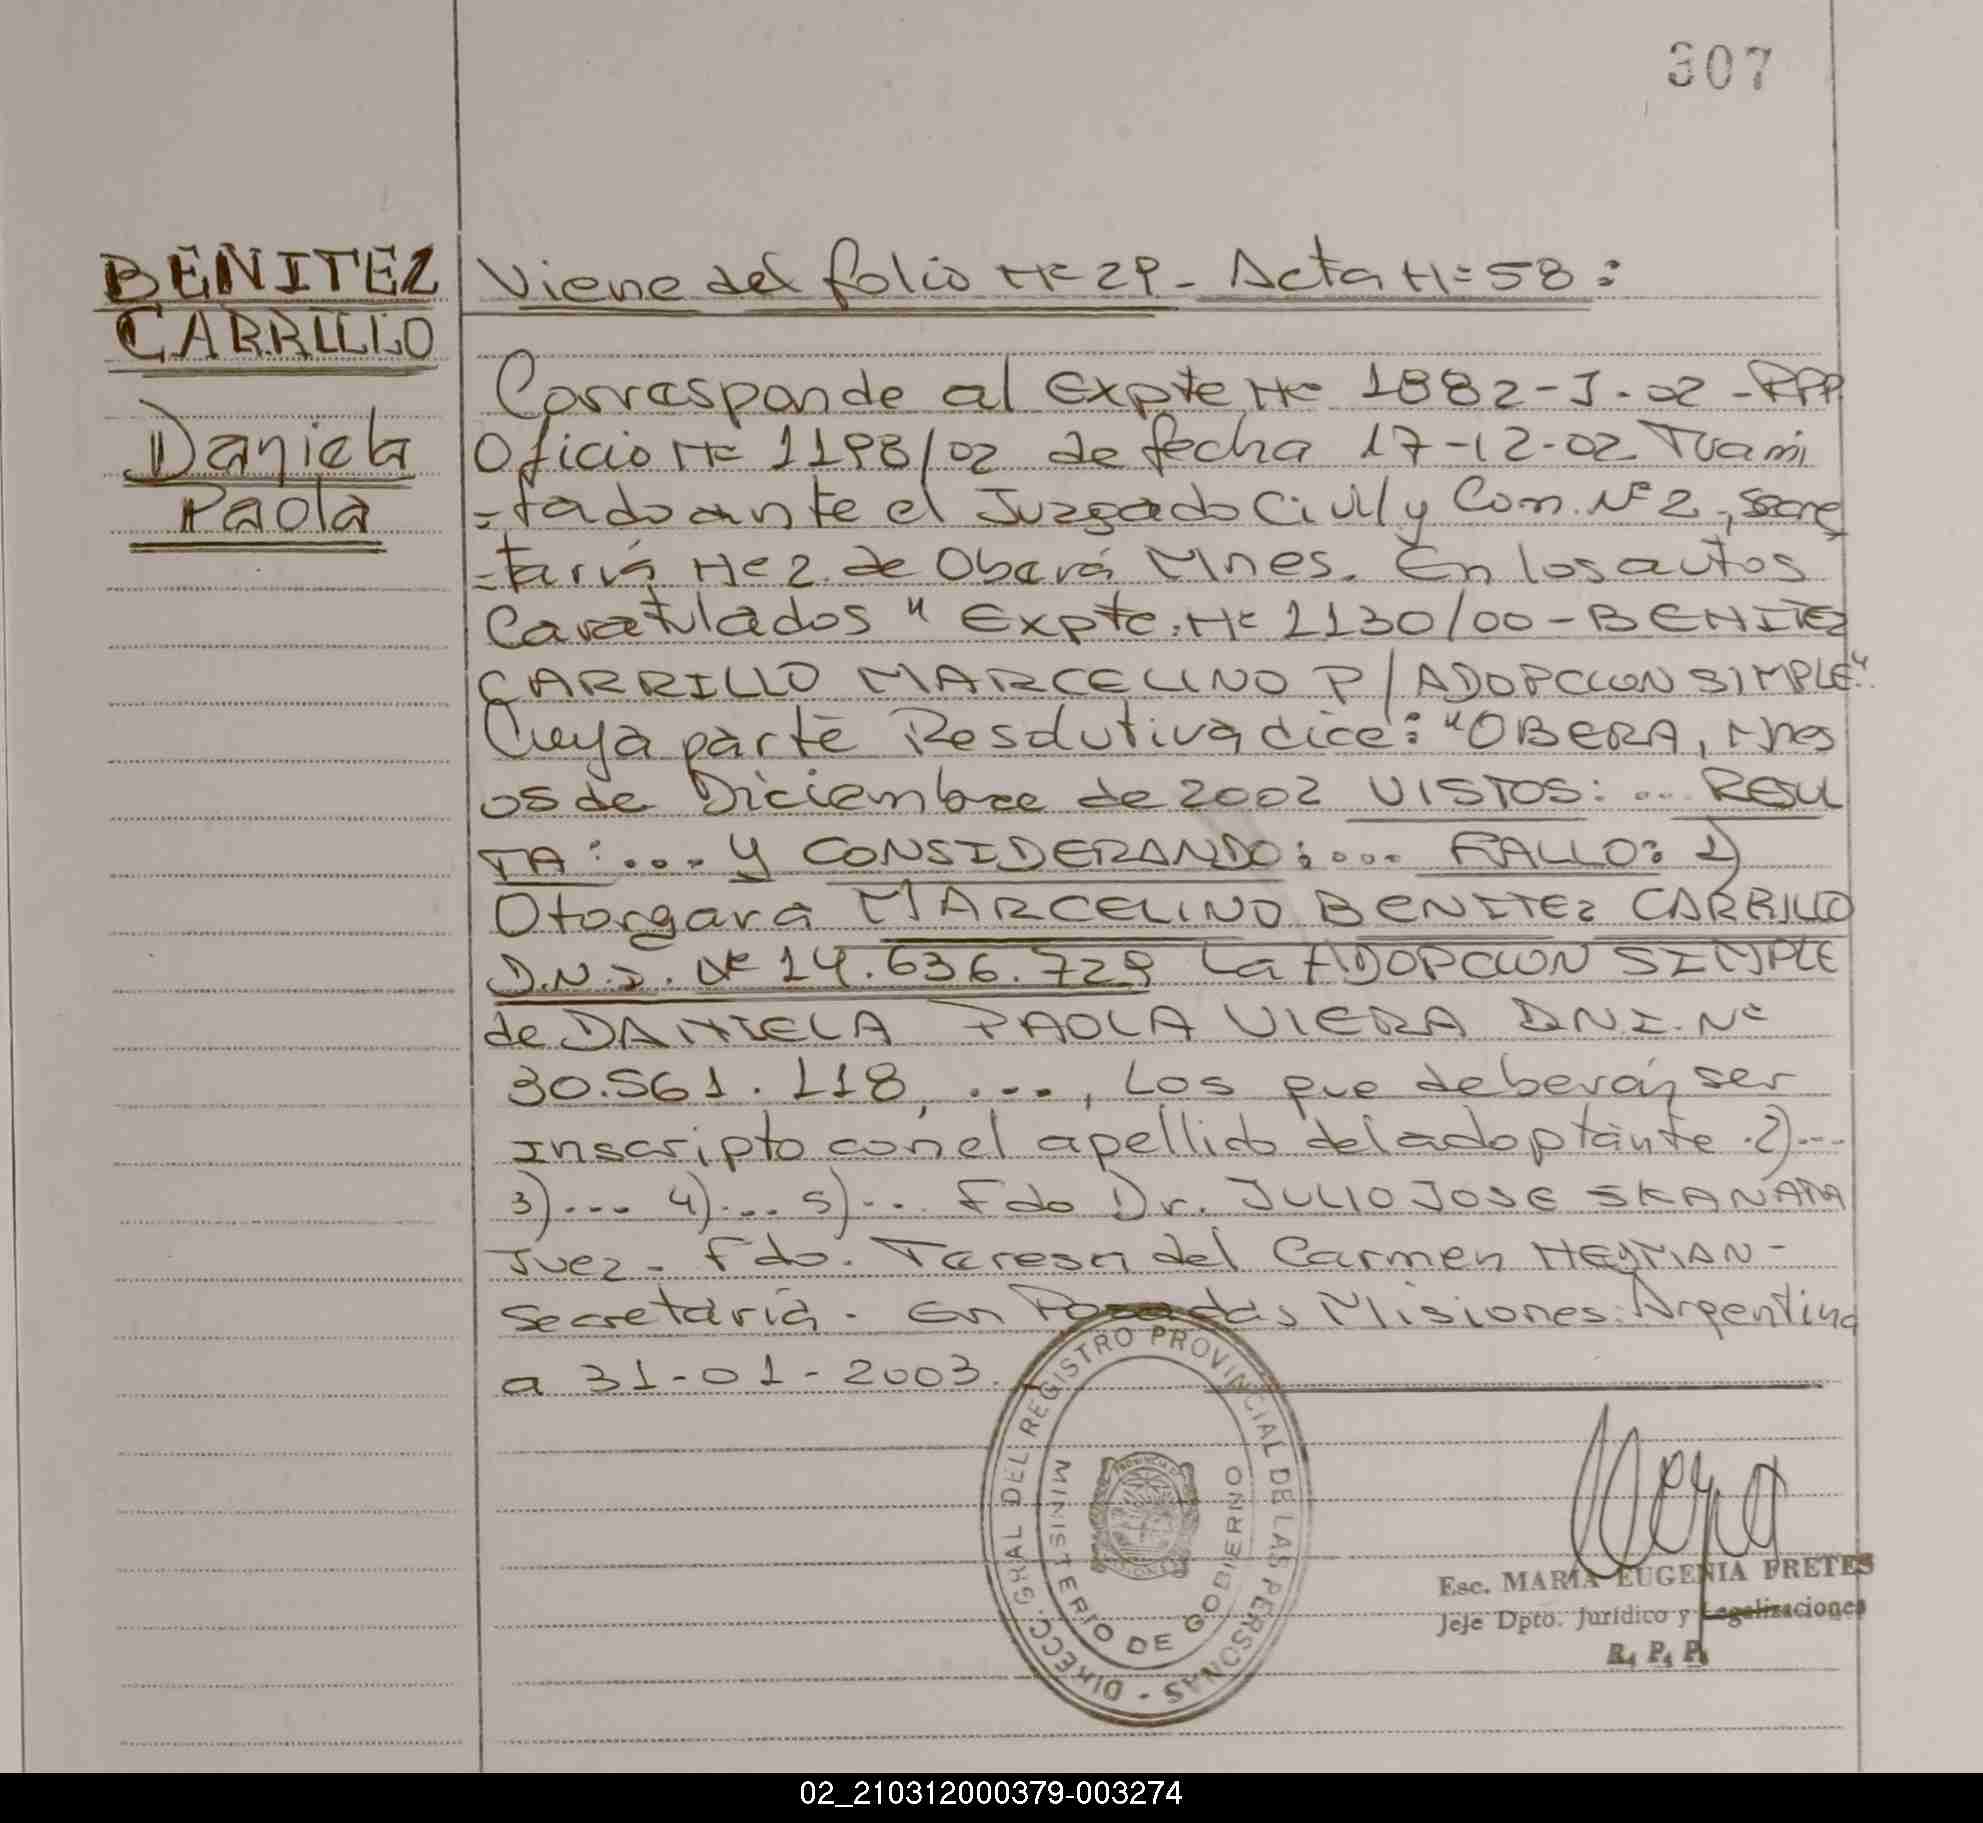 307
BENITEZ
CARRILLO
Daniela
Paola
Viene del folio Nº 29 - Acta Nº 58:
Corresponde al Expte Nº 1882-J-02-RPP
Oficio Nº 1198/02 de fecha 17-12-02 Trami
=tado ante el Juzgado Civil y Com. Nº 2, Secre
=taría Nº 2 de Oberá Mnes. En los autos
Caratulados "Expte. Nº 1130/00 - BENITEZ
CARRILLO MARCELINO P/ADOPCION SIMPLE"
Cuya parte Resolutiva dice: "OBERA, Mnes
05 de Diciembre de 2002 VISTOS: ... RESUL
TA: .... Y CONSIDERANDO: ... FALLO: 1)
Otorgar a MARCELINO BENITEZ CARRILLO
D.N.I. Nº 14.636.729 La ADOPCION SIMPLE
de DANIELA PAOLA VIERA D.N.I. Nº
30.561.118, ..., Los que deberán ser
Inscripto con el apellido del adoptante. 2)...
3).... 4).... 5)... Fdo Dr. JULIO JOSE SKANATA
Juez - Fdo. Teresa del Carmen HEYMAN -
Secretaria. En Posadas Misiones Argentina
a 31-01-2003.
DIRECC. GRAL DEL REGISTRO PROVINCIAL DE LAS PERSONAS -
MINISTERIO DE GOBIERNO
Esc. MARIA EUGENIA FRETES
Jefe Dpto. Jurídico y Legalizaciones
R. P. P.
02_210312000379-003274